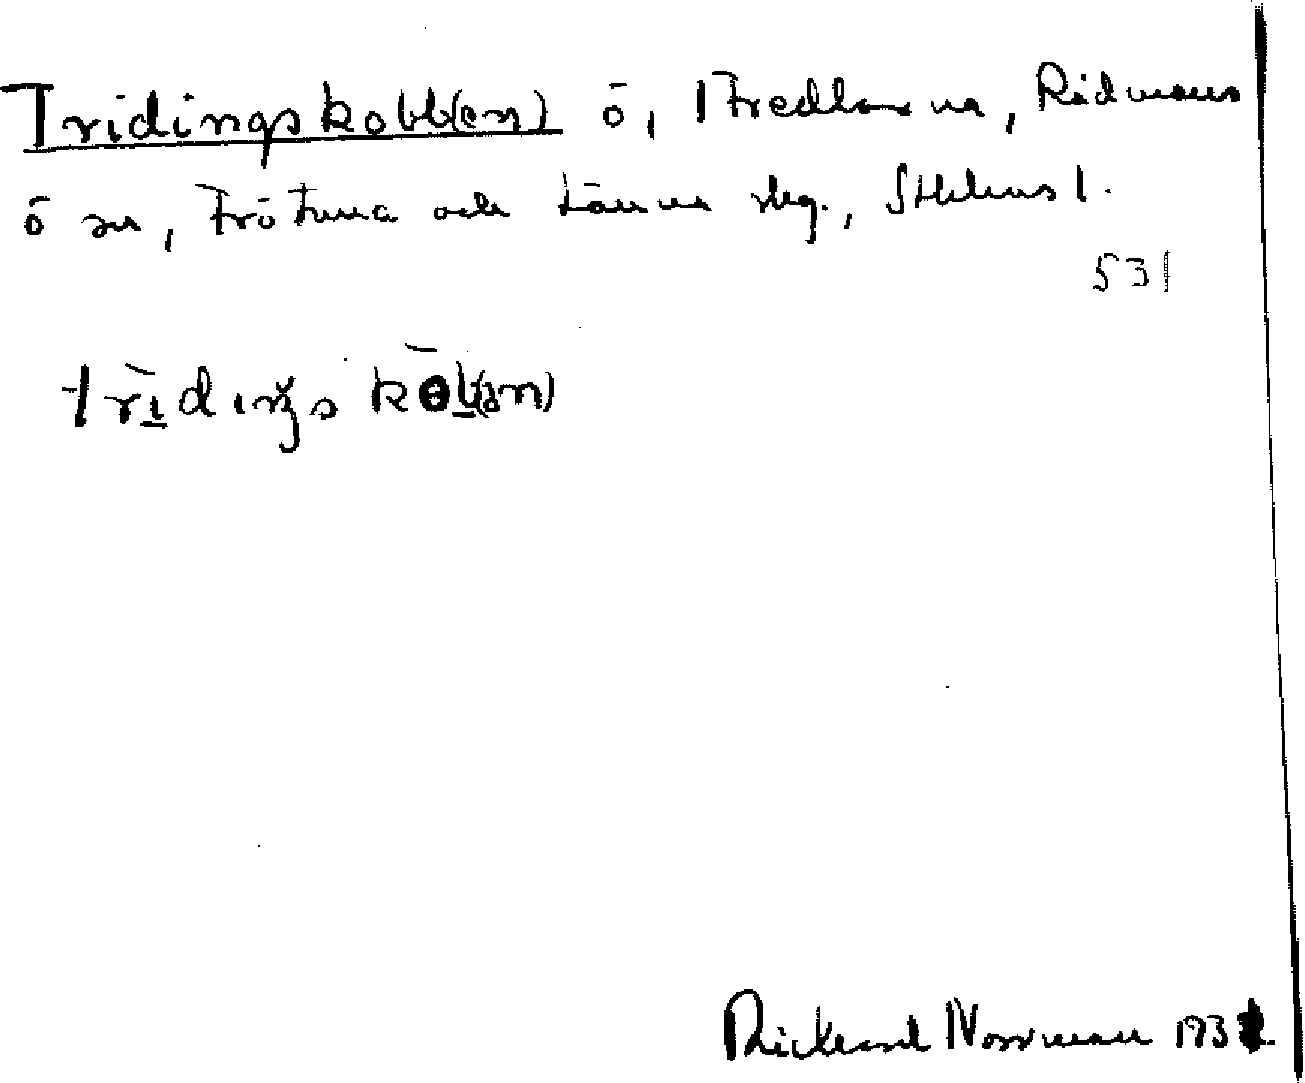 Tridingskobb(en) ö, Fredlarna, Rådmans
ö sn, Frötuna och Länna skg., Sthlms l.
531
Rickard Norrman 193